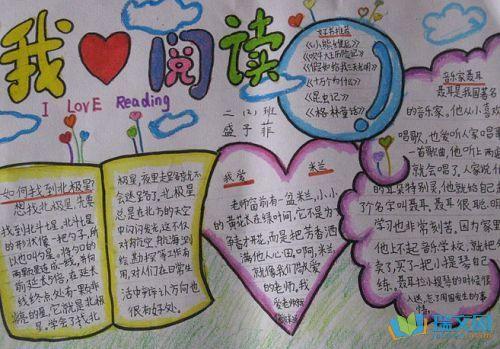 我 阅读
I LOVE Reading
二(2)班
盛子菲
好书推荐
《小熊
《吹牛大王历险记》
《假如给我三天光明》
《十万个为什么》
《昆虫记》
《格林童话》
如何找到北极星?
想找北极星,先要
找到北斗星,北斗星
的形状像一把勺子,所
以也叫勺星。
两颗星连成一线,
前延大5倍,在延长
线终点处有一颗非
常亮的星,它就是北极
星。学会了找北
极星,夜里走路就不
会迷路了。北极星
总是在北方的天空
中闪闪发光,这不仅
对航空、航海、测
绘、勘探等工作有
用,对人们在日常生
活中辨认方向也
很有好处。
我爱 米兰
老师窗前有一盆米兰,小小
的黄花藏在绿叶间,它不是为了
争春才开花,而是把芳香洒
满他人心田。啊,米兰,
就像亲们敬爱
的老师,我
爱老师
音乐家聂耳
聂耳是我国著名
的音乐家。他从小喜欢
唱歌,也爱听人家唱歌
一首歌曲,他听上两
就会唱了。人们说他
的耳朵特别灵,他就给自己
3个名字叫聂耳。聂耳很聪明,
学习也非常刻苦。因为家里
他上不起音乐学校,就把
卖了,买了一把小提琴自己
练。聂耳拉小提琴的时候很
入迷,忘了周围发生的事
情。
瑞文网